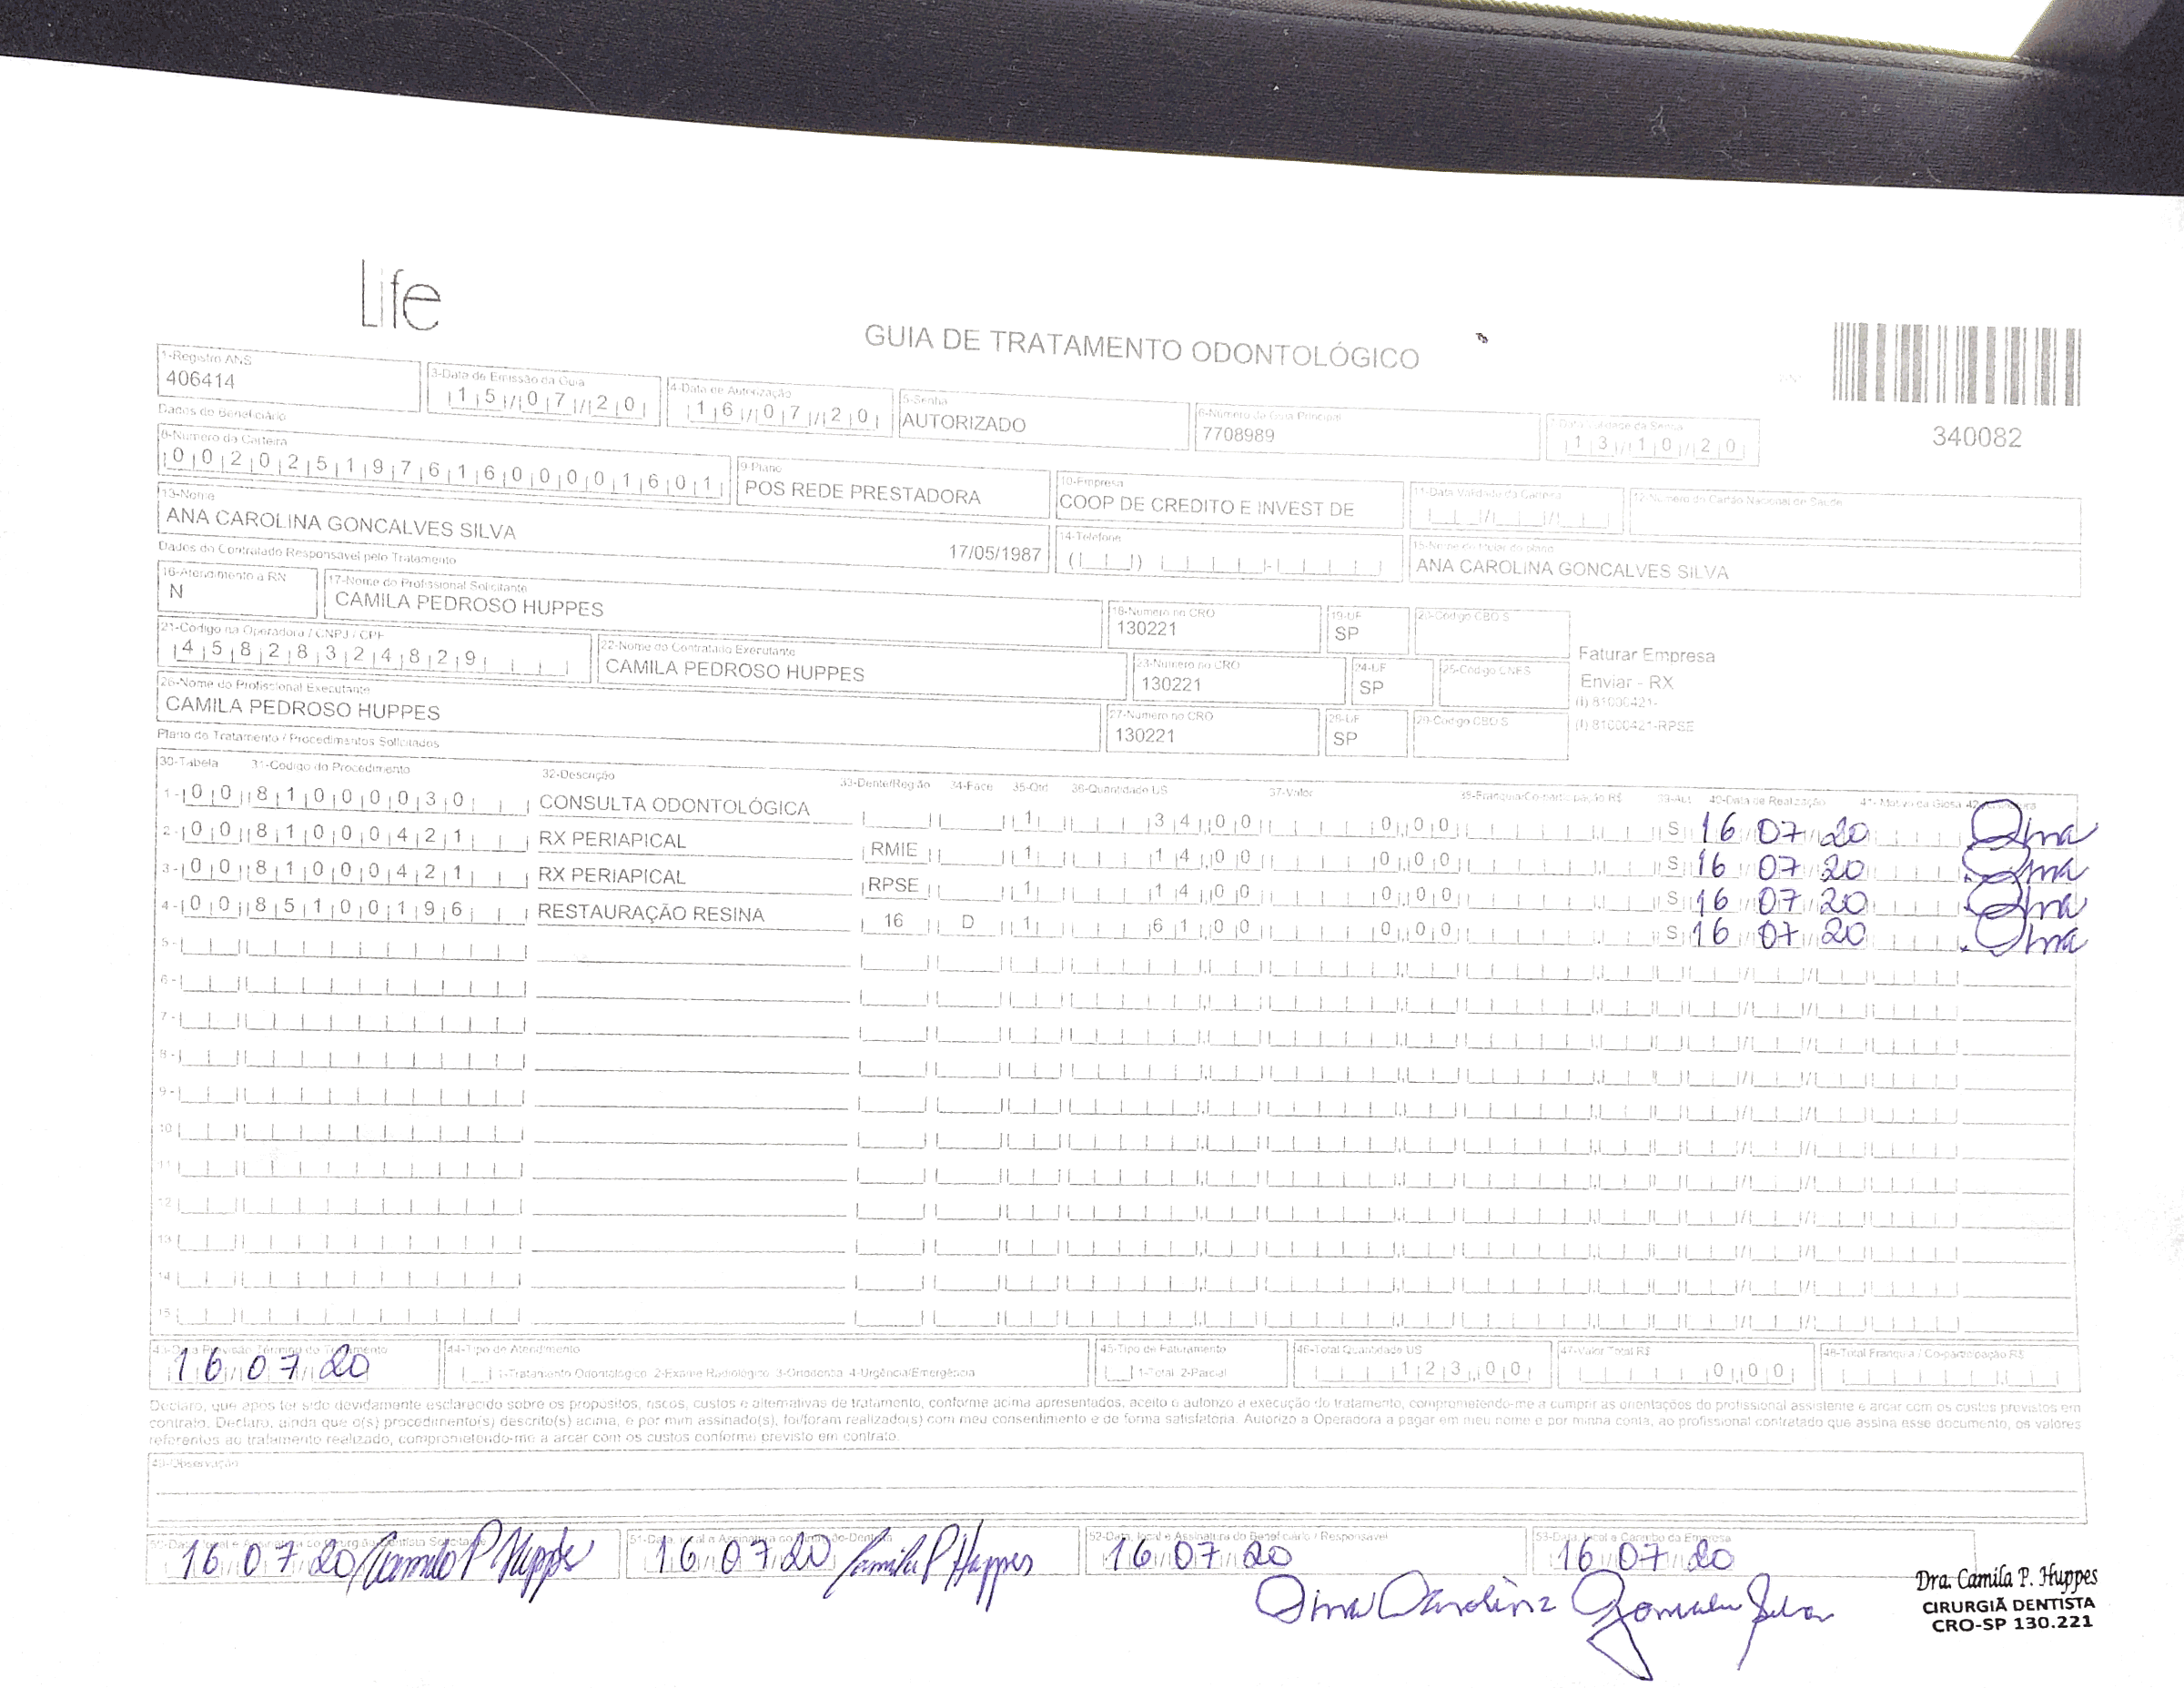 Life
GUIA DE TRATAMENTO ODONTOLÓGICO
340082
1-Registro ANS
406414
3-Data de Emissão da Guia
15/07/20
4-Data de Autorização
16/07/20
5-Senha
AUTORIZADO
6-Número da Guia Principal
7708989
7-Data Validade da Senha
13/10/20
Dados do Beneficiário
8-Número da Carteira
00202519761600001601
9-Plano
POS REDE PRESTADORA
10-Empresa
COOP DE CREDITO E INVEST DE
11-Data Validade da Carteira
12-Número do Cartão Nacional de Saúde
13-Nome
ANA CAROLINA GONCALVES SILVA 17/05/1987
14-Telefone
15-Nome do Titular do Plano
ANA CAROLINA GONCALVES SILVA
Dados do Contratado Responsável pelo Tratamento
16-Atendimento a RN
N
17-Nome do Profissional Solicitante
CAMILA PEDROSO HUPPES
18-Número no CRO
130221
19-UF
SP
20-Código CBO S
21-Código na Operadora / CNPJ / CPF
45828324829
22-Nome do Contratado Executante
CAMILA PEDROSO HUPPES
23-Número no CRO
130221
24-UF
SP
25-Código CNES
26-Nome do Profissional Executante
CAMILA PEDROSO HUPPES
27-Número no CRO
130221
28-UF
SP
29-Código CBO S
Faturar Empresa
Enviar - RX
(I) 81000421-
(I) 81000421-RPSE
Plano de Tratamento / Procedimentos Solicitados
30-Tabela 31-Código do Procedimento 32-Descrição 33-Dente/Região 34-Face 35-Qtd 36-Quantidade US 37-Valor 38-Franquia/Co-participação R$ 39-Aut 40-Data de Realização 41-Motivo da Glosa
1- 00 81000030 CONSULTA ODONTOLÓGICA 1 34,00 0,00 S 16/07/20 Ana
2- 00 81000421 RX PERIAPICAL RMIE 1 14,00 0,00 S 16/07/20 Ana
3- 00 81000421 RX PERIAPICAL RPSE 1 14,00 0,00 S 16/07/20 Ana
4- 00 85100196 RESTAURAÇÃO RESINA 16 D 1 61,00 0,00 S 16/07/20 Ana
5-
6-
7-
8-
9-
10
11
12
13
14
15
43-Data Previsão Término do Tratamento
16/07/20
44-Tipo de Atendimento
1-Tratamento Odontológico 2-Exame Radiológico 3-Ortodontia 4-Urgência/Emergência
45-Tipo de Faturamento
1-Total 2-Parcial
46-Total Quantidade US
123,00
47-Valor Total R$
0,00
48-Total Franquia / Co-participação R$
Declaro, que após ter sido devidamente esclarecido sobre os propósitos, riscos, custos e alternativas de tratamento, conforme acima apresentados, aceito e autorizo a execução do tratamento, comprometendo-me a cumprir as orientações do profissional assistente e arcar com os custos previstos em
contrato. Declaro, ainda que o(s) procedimento(s) descrito(s) acima, e por mim assinado(s), foi/foram realizado(s) com meu consentimento e de forma satisfatória. Autorizo a Operadora a pagar em meu nome e por minha conta, ao profissional contratado que assina esse documento, os valores
referentes ao tratamento realizado, comprometendo-me a arcar com os custos conforme previsto em contrato.
49-Observação
16/07/20 Camila P Huppes
16/07/20 Camila P Huppes
52-Data, local e Assinatura do Beneficiário / Responsável
16/07/20
Ana Carolina Goncalves Silva
53-Data, local e Carimbo da Empresa
16/07/20
Dra. Camila P. Huppes
CIRURGIÃ DENTISTA
CRO-SP 130.221